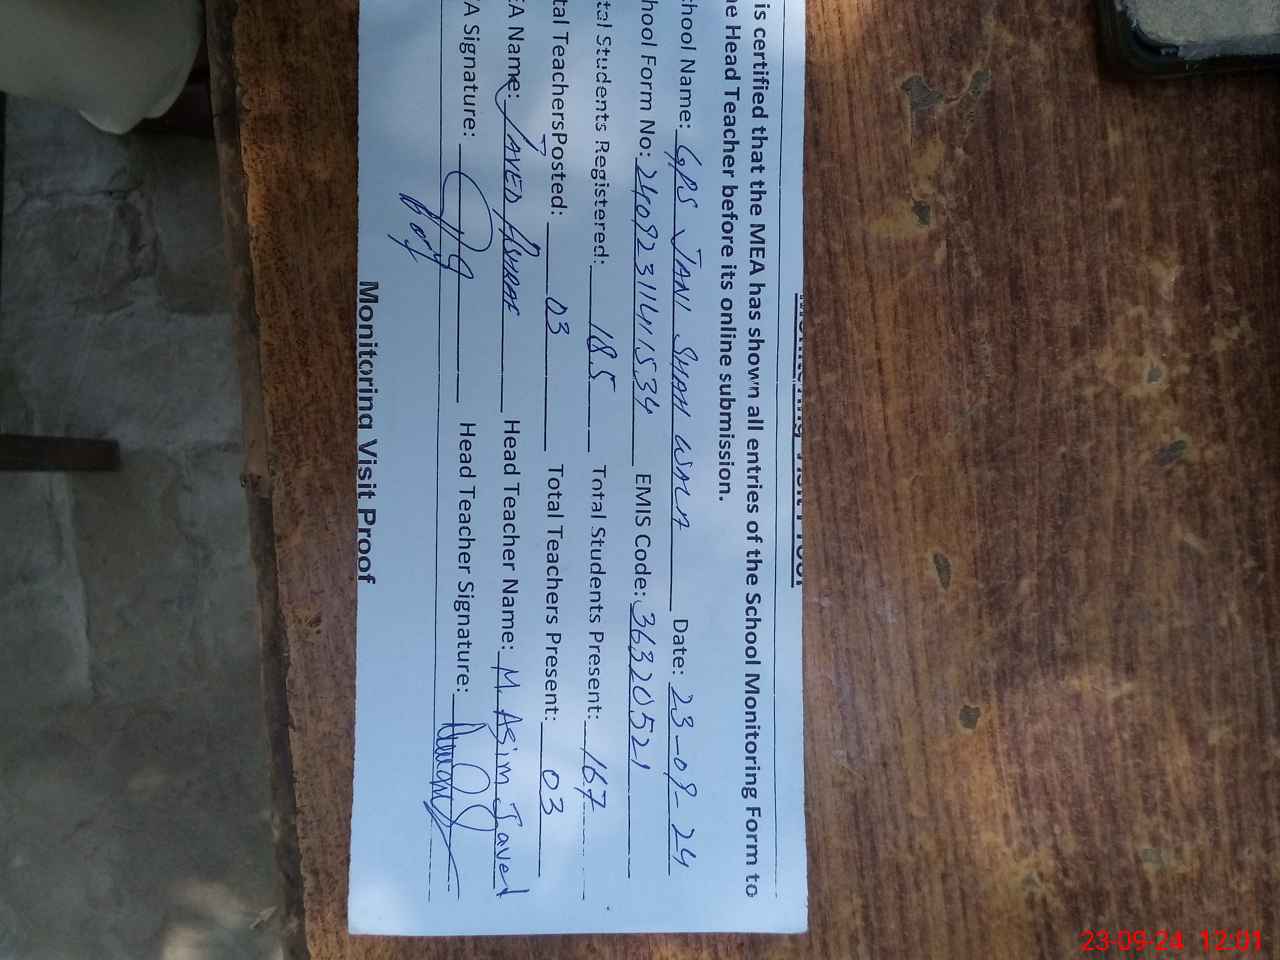 is certified that the MEA has shown all entries of the School Monitoring Form to
e Head Teacher before its online submission.
chool Name: GPS JANI SHAH WALA Date: 23-09-24
hool Form No: 24092311411534 EMIS Code: 36320521
tal Students Registered: 185 Total Students Present: 167
tal TeachersPosted: 03 Total Teachers Present: 03
EA Name: JAVED Head Teacher Name: M. Asim Javed
A Signature: Head Teacher Signature:
Monitoring Visit Proof
23-09-24 12:01